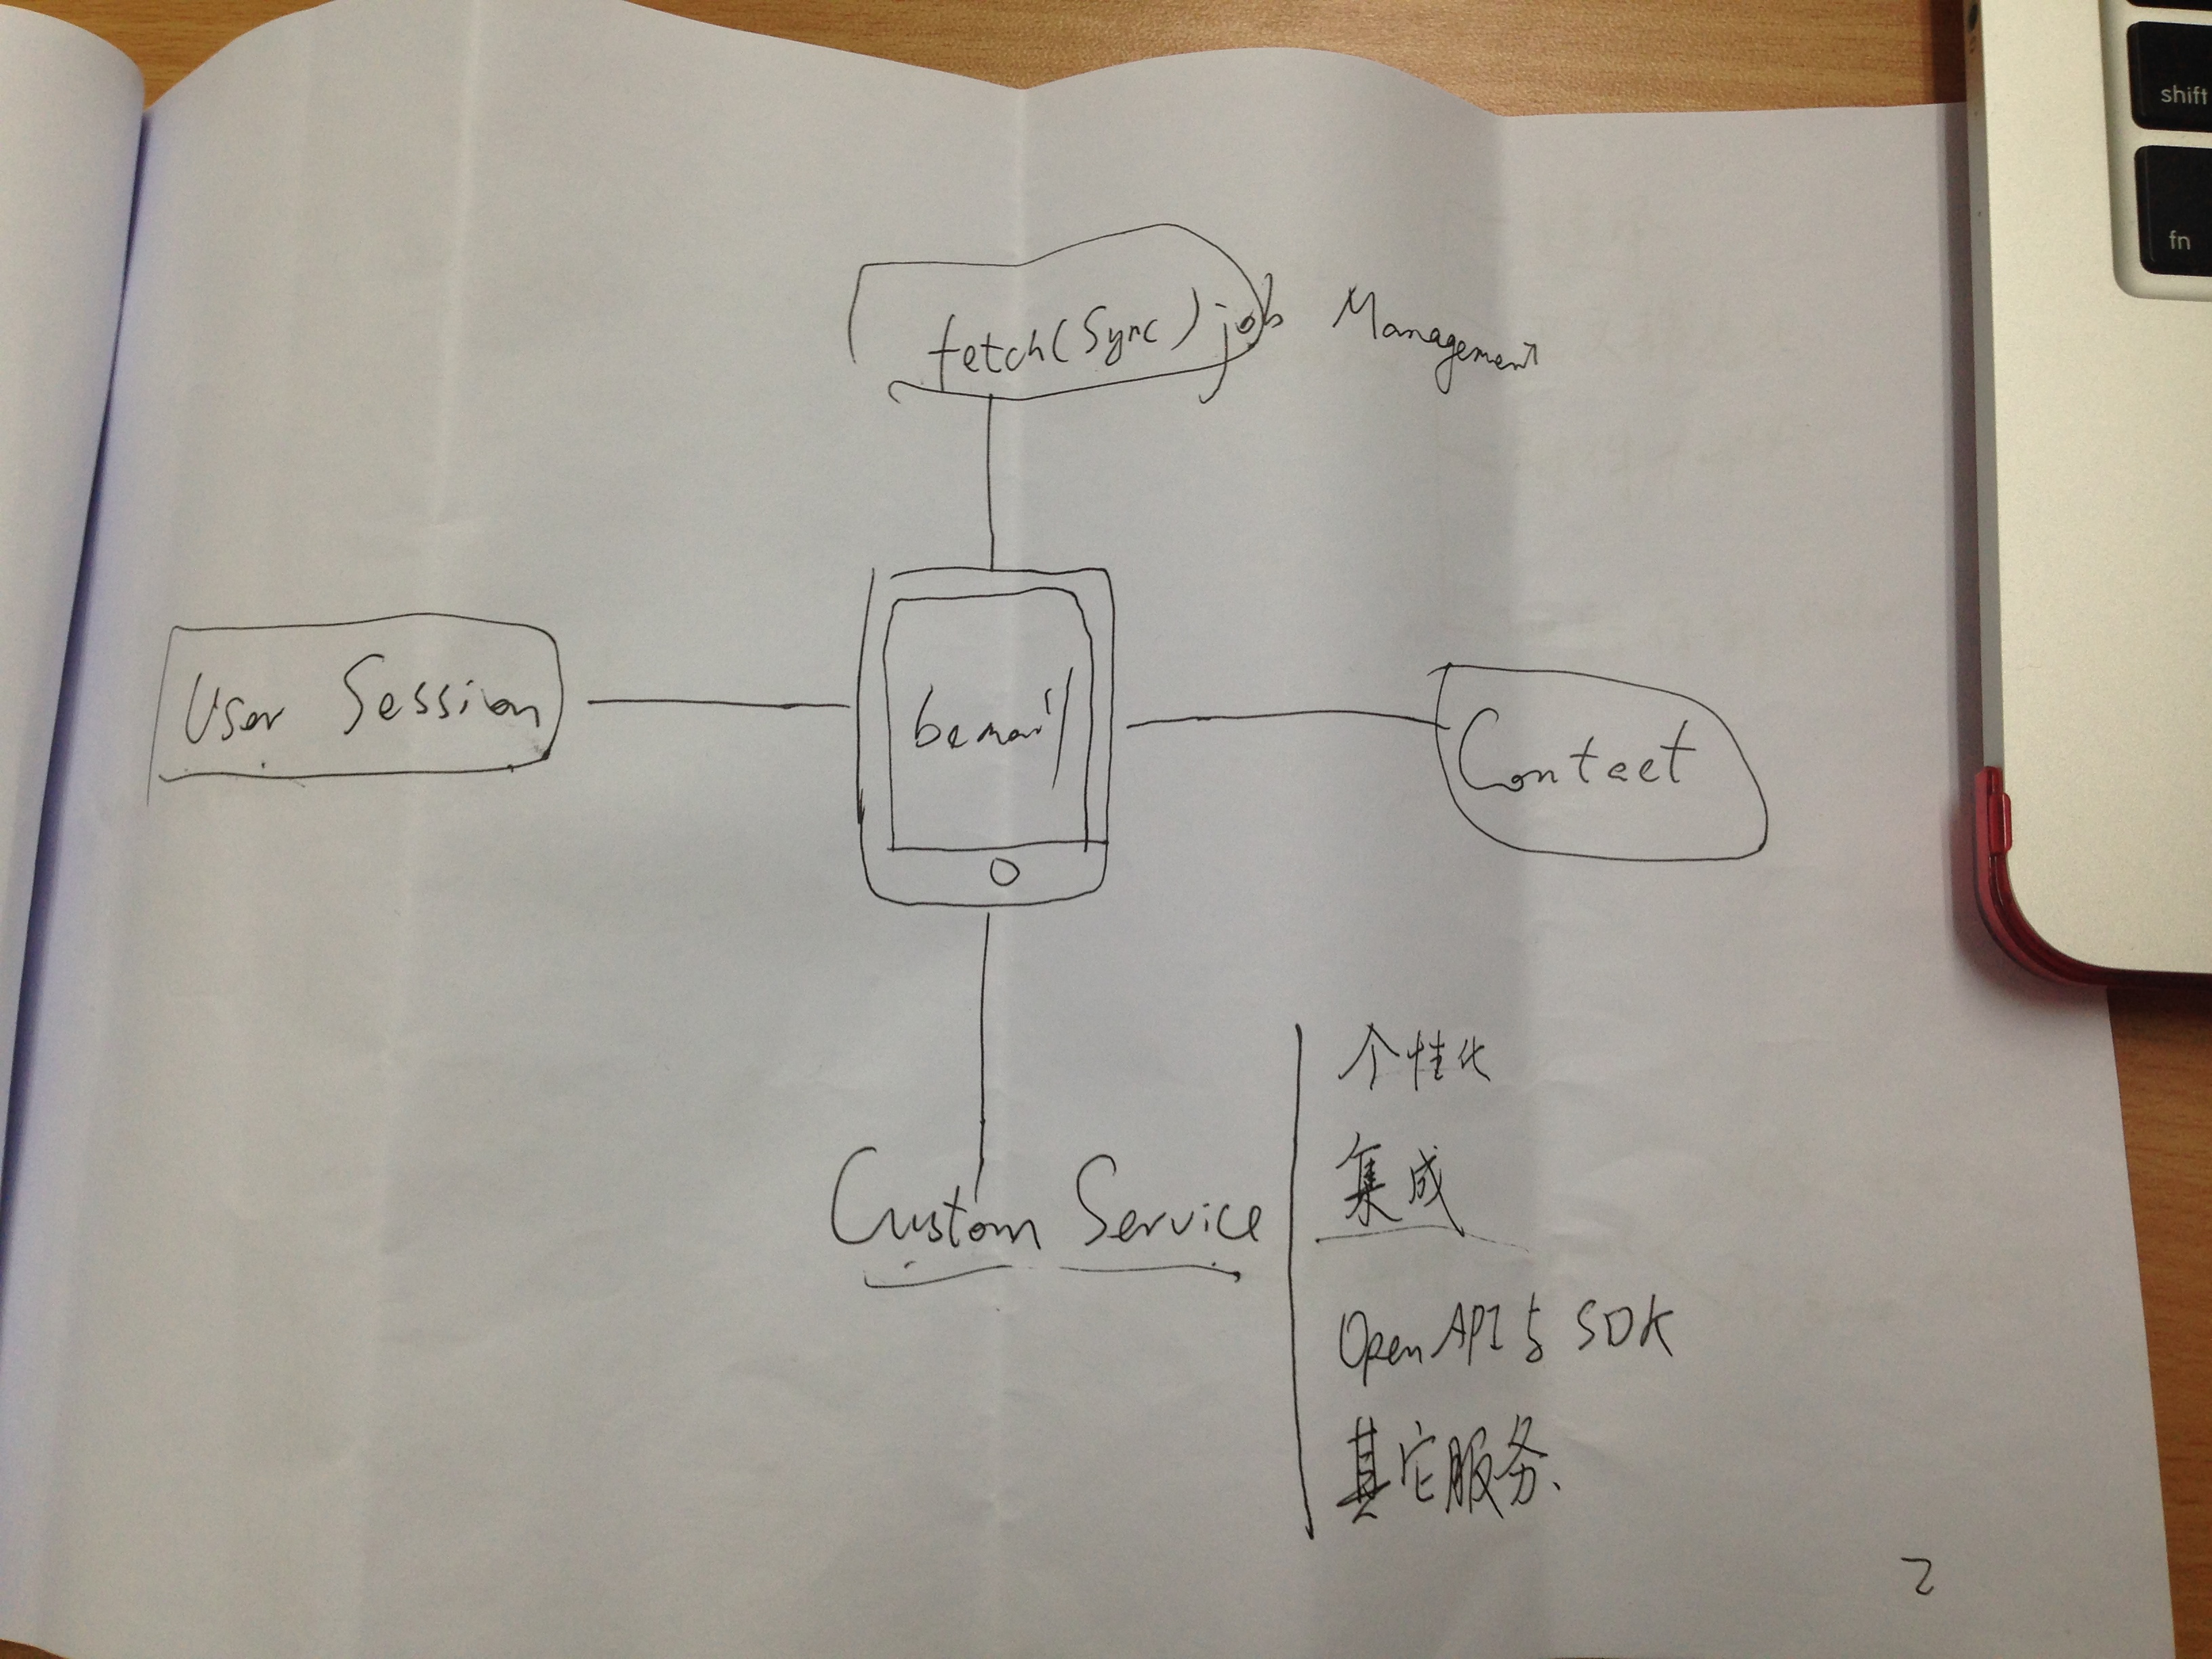 shift
fn
fetch(Sync) job Management
User Session
bemail
Contact
Custom Service
个性化
集成
Open API与 SDK
其它服务、
2